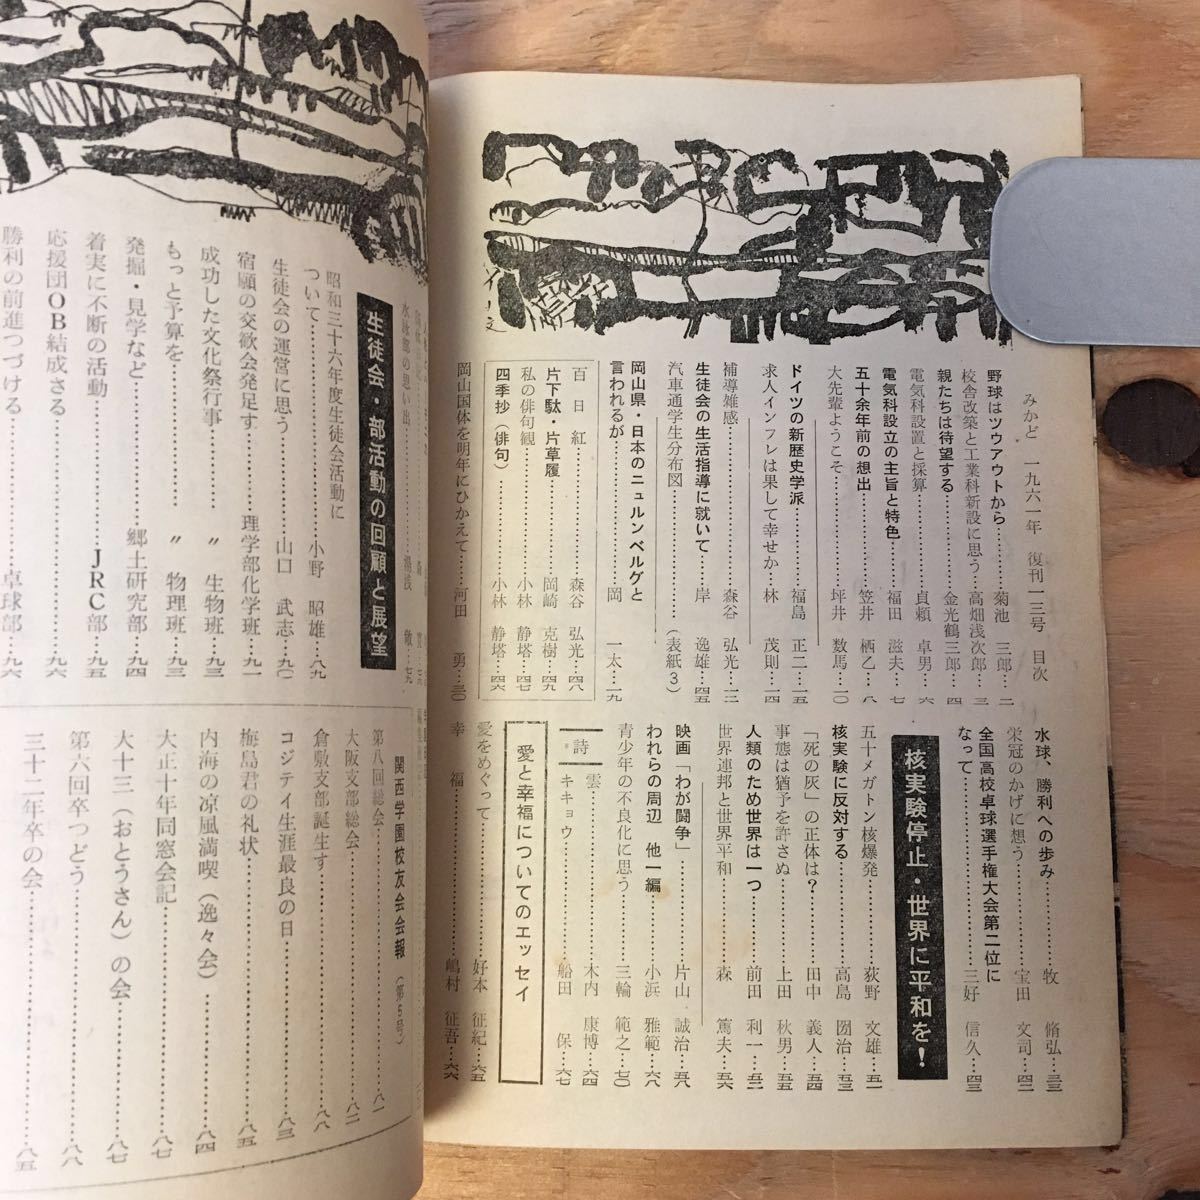 みかど 一九六一年 復刊一三号 目次
野球はツウアウトから……菊池 三郎…二
校舎改築と工業科新設に思う…高畑浅次郎…三
親たちは待望する………金光鶴三郎…四
電気科設置と採算………貞頼 卓男…六
電気科設立の主旨と特色…福田 滋夫…七
五十余年前の想出………笠井 栖乙…八
大先輩ようこそ………坪井 数馬…一〇
ドイツの新歴史学派………福島 正二…一五
求人インフレは果して幸せか…林 茂則…一四
補導雑感………森谷 弘光…一二
生徒会の生活指導に就いて…岸 逸雄…四五
汽車通学生分布図………(表紙3)
岡山県・日本のニュルンベルグと
言われるが………岡 一太…一九
百日紅………森谷 弘光…四八
片下駄・片草履………岡崎 克樹…四九
私の俳句観………小林 静塔…四七
四季抄(俳句)………小林 静塔…四六
岡山国体を明年にひかえて…河田 勇…三〇
水球、勝利への歩み………牧 脩弘…三三
栄冠のかげに想う………宝田 文司…四二
全国高校卓球選手権大会第二位に
なって………三好 信久…四三
核実験停止・世界に平和を!
五十メガトン核爆発………荻野 文雄…五一
核実験に反対する………高島 圀治…五三
「死の灰」の正体は?………田中 義人…五四
事態は猶予を許さぬ………上田 秋男…五五
人類のため世界は一つ………前田 利一…五二
世界連邦と世界平和………森 篤夫…五六
映画「わが闘争」………片山 誠治…五八
われらの周辺 他一編………小浜 雅範…六八
青少年の不良化に思う………三輪 範之…七〇
詩
雲………木内 康博…六四
キキョウ………船田 保…六七
愛と幸福についてのエッセイ
愛をめぐって………好本 征紀…六五
幸福………嶋村 征吾…六六
水泳部の思い出………湯浅 敏…七九
生徒会・部活動の回顧と展望
昭和三十六年度生徒会活動に
ついて………小野 昭雄…八九
生徒会の運営に思う………山口 武志…九〇
宿願の交歓会発足す………理学部化学班…九一
成功した文化祭行事………〃 生物班…九三
もっと予算を………〃 物理班…九三
発掘・見学など………郷土研究部…九四
着実に不断の活動………JRC部…九五
応援団OB結成さる………九六
勝利の前進つづける………卓球部…九六
関西学園校友会会報(第5号)
第八回総会………八一
大阪支部総会………八二
倉敷支部誕生す………八八
コジテイ生涯最良の日………八三
梅島君の礼状………八五
内海の凉風満喫(逸々会)………八四
大正十年同窓会記………八七
大十三(おとうさん)の会………八七
第六回卒つどう………八八
三十二年卒の会………八五